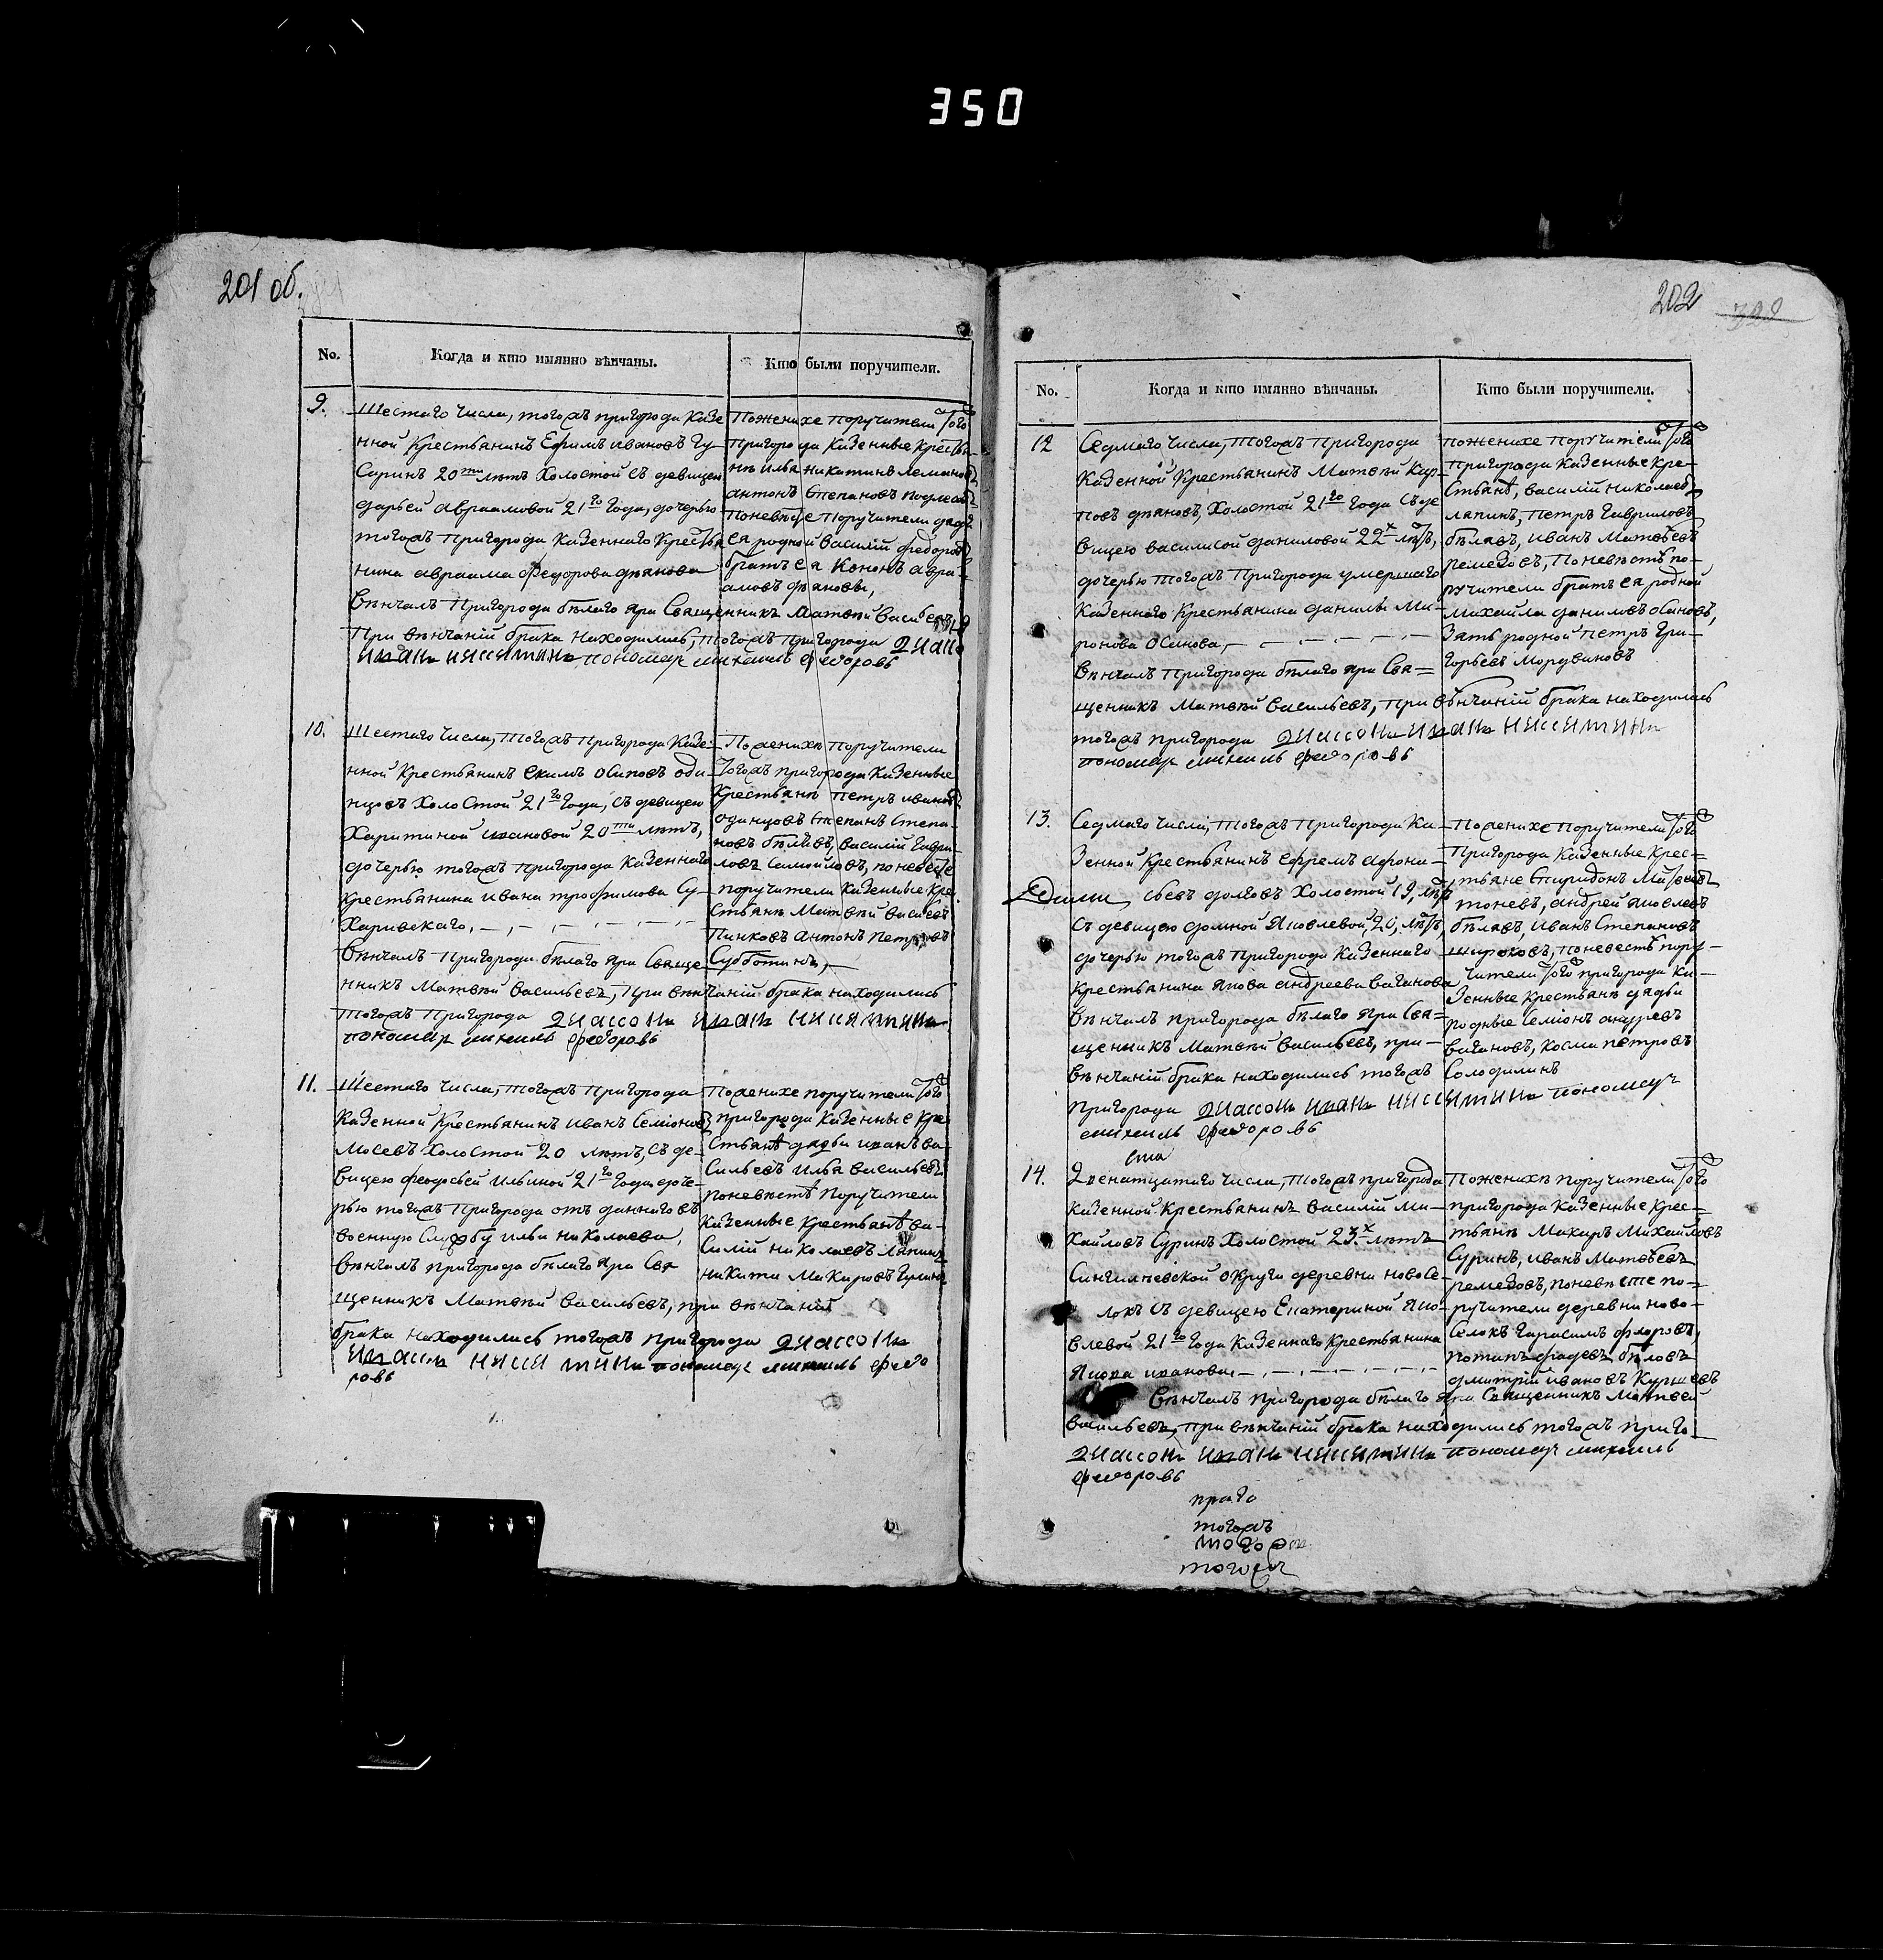 350
201 об.
No. Когда и кто имянно вѣнчаны. Кто были поручители.
9.
Шестаго числа, тогожъ пригорода казе
нной крестьянинъ Ефимъ ивановъ Гу
Суринъ 20ти лѣтъ холостой съ девицею
дарьей авраамовой 21го года, дочерью
тогожъ пригорода казеннаго крестья
нина авраама Федорова
Вѣнчалъ пригорода бѣлаго яра Священникъ Матвѣй Васильевъ
При вѣнчаній брака находились, тогожъ пригорода диако
иванъ никитинъ пономарь михаилъ федоровъ
Поженихе поручители того
пригорода казенные крестья
нѣ илья никитинъ
антонъ Степановъ
поневѣсте поручители дядя
ея родной Василій федоровъ
братъ ея Кононъ авра
амовъ
10.
Шестаго числа, тогожъ пригорода казе
нной крестьянинъ Екимъ осиповъ оди
нцовъ холостой 21го года, съ девицею
Харитиной ивановой 20ти лѣтъ,
дочерью тогожъ пригорода казеннаго
крестьянина ивана трофимова Су
харивскаго,
Вѣнчалъ пригорода бѣлаго яра Свяще
нникъ Матвѣй Васильевъ, при вѣнчаній брака находились
тогожъ пригорода диаконъ иванъ никитинъ
пономарь михаилъ федоровъ
Поженихѣ поручители
тогожъ пригорода казенные
крестьянѣ петръ ивановъ
одинцовъ Степанъ Степа
новъ бѣловъ, Василій гаври
ловъ Самойловъ, поневесте
поручители казенные кре
стьянѣ Матвѣй Васильевъ
Пинковъ антонъ петровъ
Субботинъ,
11.
Шестаго числа, тогожъ пригорода
казенной крестьянинъ иванъ Семіоновъ
Мосевъ холостой 20 лѣтъ, съ де
вицею феодосьей ильиной 21го года доче
рью тогожъ пригорода отъ даннаго въ
военную Службу ильи николаева,
Вѣнчалъ пригорода бѣлаго яра Свя
щенникъ Матвѣй Васильевъ, при вѣнчаній
брака находились тогожъ пригорода диаконъ
иванъ никитинъ пономарь михаилъ федо
ровъ
Поженихе поручители того
пригорода казенные кре
стьянѣ дядьи иванъ ва
сильевъ илья васильевъ
поневѣстѣ поручители
казенные крестьянѣ ва
силій николаевъ лапинъ
никита Макаровъ
202
No. Когда и кто имянно вѣнчаны. Кто были поручители.
12
Седмаго числа, тогожъ пригорода
казенной крестьянинъ Матвѣй кар
повъ холостой 21го года съ де
вицею василисой даниловой 22х лѣтъ,
дочерью тогожъ пригорода умершаго
казеннаго крестьянина данилы Ми
ронова Осинова,
Вѣнчалъ пригорода бѣлаго яра Свя
щенникъ Матвѣй Васильевъ, при вѣнчаній брака находились
тогожъ пригорода диаконъ иванъ никитинъ
пономарь михаилъ федоровъ
поженихе поручители того
пригорода казенные кре
стьянѣ, василій николаевъ
лапинъ, петръ Гавриловъ
бѣловъ, иванъ Матвѣевъ
ремезовъ, поневѣстѣ по
ручители братъ ея родной
михайла даниловъ осиновъ,
зять родной петръ гри
горьевъ Мордвиновъ
13.
Седмаго числа, тогожъ пригорода ка
зенной крестьянинъ ефремъ афона
сьевъ долговъ холостой 19, лѣтъ
Съ девицею домной Яковлевой, 20, лѣтъ,
дочерью тогожъ пригорода казеннаго
крестьянина якова андреева ваганова
вѣнчалъ пригорода бѣлаго яра Свя
щенникъ Матвѣй Васильевъ, при
вѣнчаній брака находились тогожъ
пригорода диаконъ иванъ никитинъ пономарь
михаилъ федоровъ
Поженихе поручители того
пригорода казенные крес
тьяне Спиридонъ Матвеевъ
андрей яковлевъ
бѣловъ, иванъ Степановъ
широковъ, поневестѣ пору
чители того пригорода ка
зенные крестьянѣ дядьи
родные Семіонъ андреевъ
вагановъ, косма петровъ
Солодилинъ
14.
Двенатцатаго числа, тогожъ пригорода
казенной крестьянинъ василій ми
хайловъ Суринъ холостой 23х лѣтъ
Сингилѣевской округи деревни новосе
локъ съ девицею Екатериной Яко
влевой 21го года казеннаго крестьянина
Якова иванова,
Вѣнчалъ пригорода бѣлаго яра Священникъ Матвей
Васильевъ, при вѣнчаній брака находились тогожъ приго
диаконъ иванъ никитинъ пономарь михаилъ
федоровъ
Поженихѣ поручители того
пригорода казенные крес
тьянѣ Макаръ Михайловъ
Суринъ, иванъ Матвѣевъ
ремезовъ, поневѣсте по
ручители деревни ново
селокъ Гарасимъ флоровъ,
бѣловъ
дмитрій ивановъ
приго
тогожъ